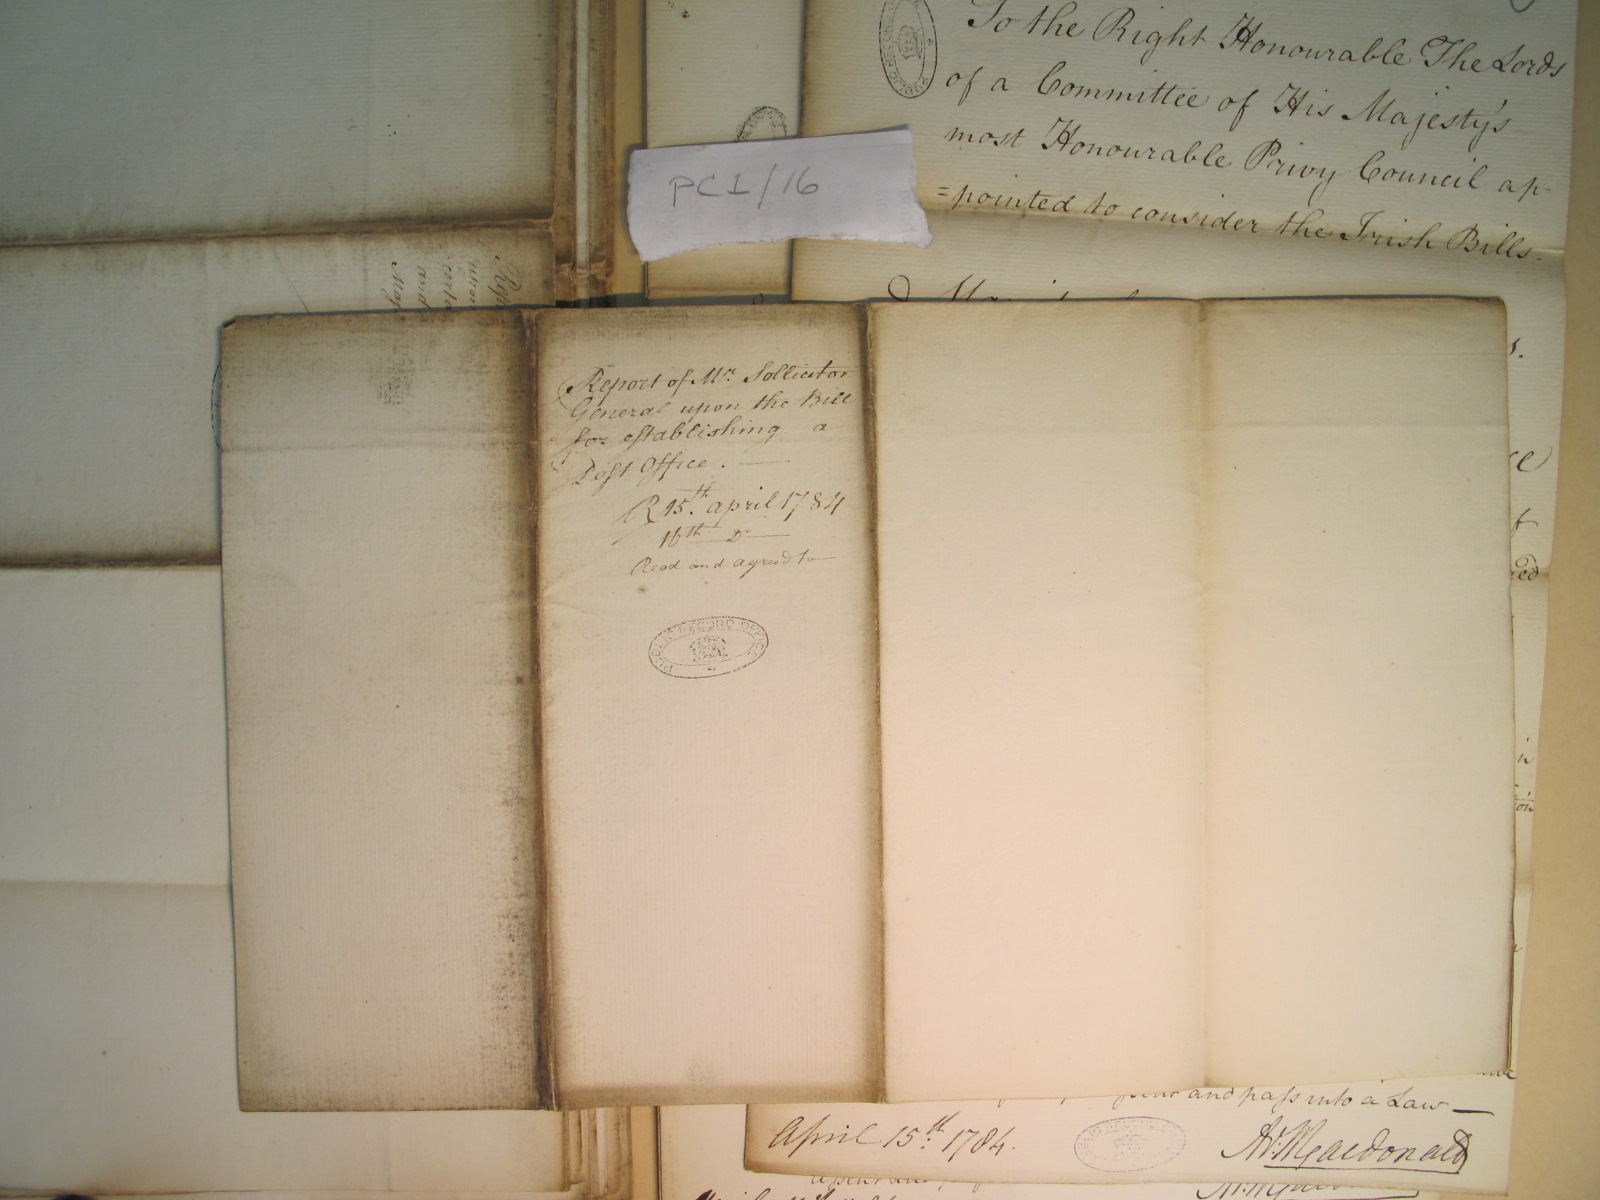 To the Right Honourable The Lords
of a Committee of His Majesty's
most Honourable Privy Council ap-
=pointed to consider the Irish Bills.
PC1/16
Report of Mr. Sollicitor
General upon the Bill
for establishing a
Post Office. —
R 15th. april 1784
16th Do
Read and agreed to
PUBLIC RECORD OFFICE
and pass into a Law —
April 15th. 1784.
Ar: Macdonald